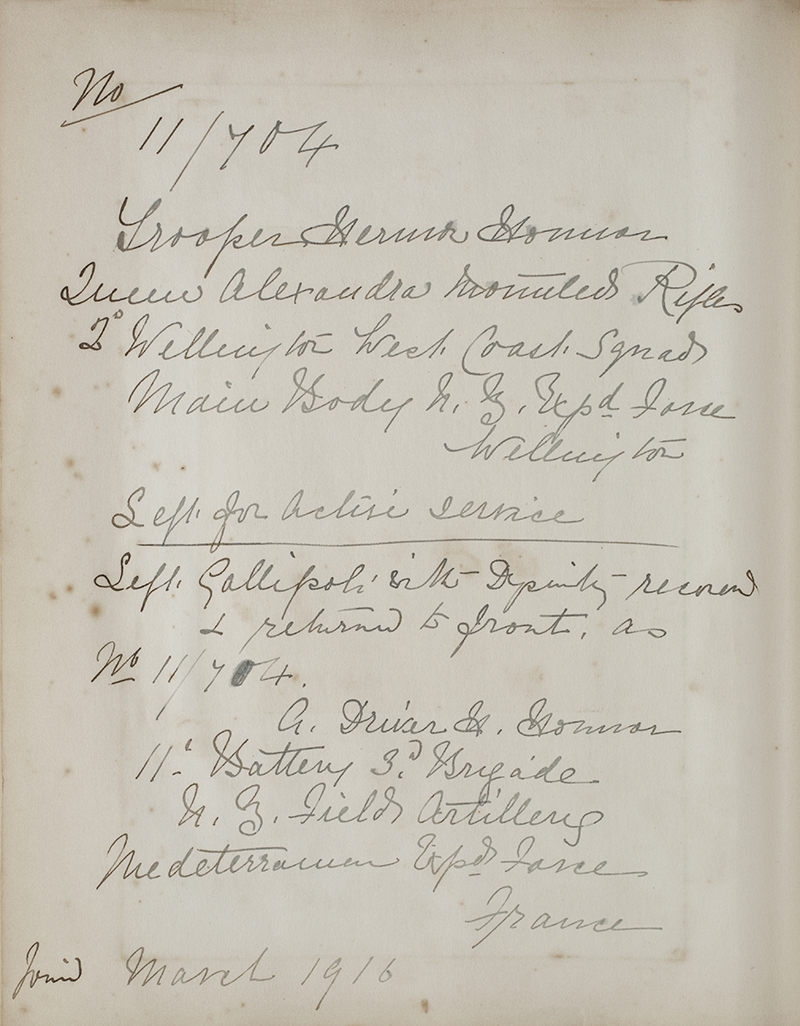 No
11/704
Trooper Herma Honnor
Queen Alexandra Mounted Rifles
2d Wellington West Coast Squad
Main Body N. Z. Expd Force
Wellington
Left for Active Service
Left Gallipoli with recovered
& returned to front, as
No 11/704.
A. Driver H. Honnor
11t Battery 3d Brigade
N. Z. Field Artillery
Medeterranean Expd Force
France
Joind March 1916